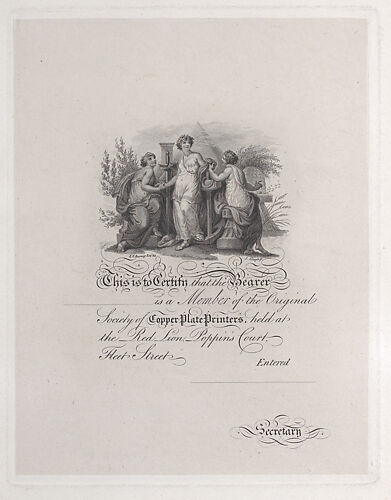 This is to Certify that the Bearer
is a Member of the Original
Society of Copper Plate Printers, held at
the Red Lion Poppins Court
Fleet Street
Entered
Secretary